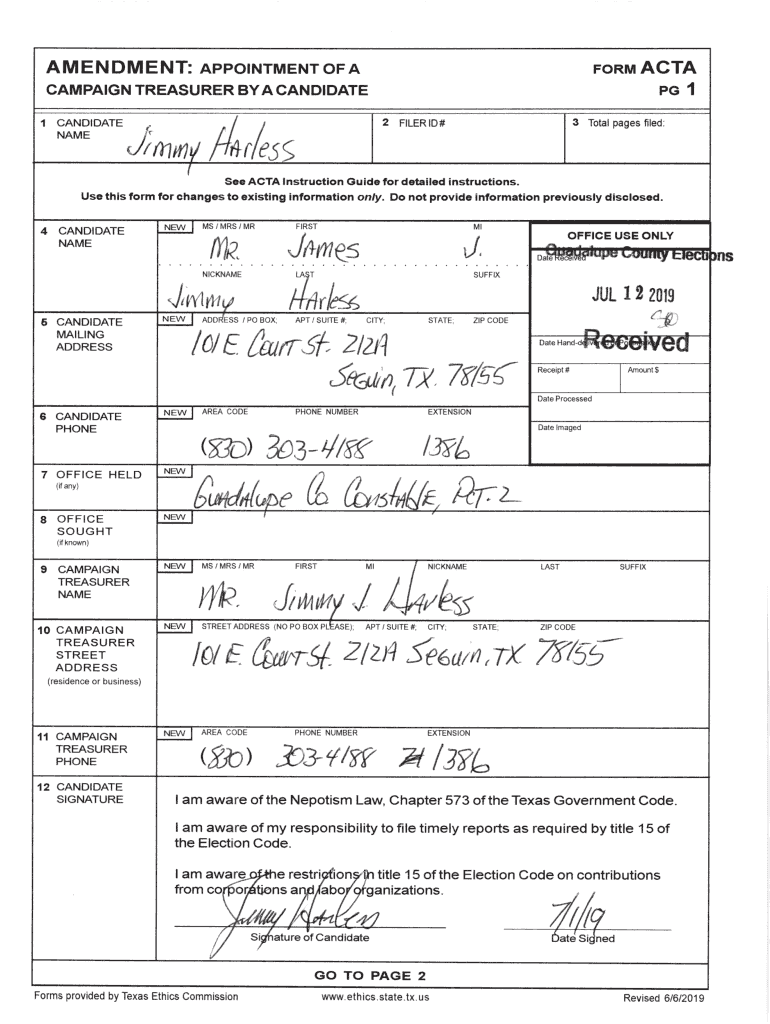 AMENDMENT: APPOINTMENT OF A
CAMPAIGN TREASURER BY A CANDIDATE
FORM ACTA
PG 1
1 CANDIDATE NAME
Jimmy Harless
2 FILER ID #
3 Total pages filed:
See ACTA Instruction Guide for detailed instructions.
Use this form for changes to existing information only. Do not provide information previously disclosed.
4 CANDIDATE NAME
NEW MS / MRS / MR FIRST MI
MR. JAMES J.
NICKNAME LAST SUFFIX
Jimmy HArless
OFFICE USE ONLY
Guadalupe County Elections
Date Received
JUL 12 2019
Received
Date Hand-delivered
Receipt # Amount $
Date Processed
Date Imaged
5 CANDIDATE MAILING ADDRESS
NEW ADDRESS / PO BOX; APT / SUITE #; CITY; STATE; ZIP CODE
101 E. Court St. 212A
Seguin, TX. 78155
6 CANDIDATE PHONE
NEW AREA CODE PHONE NUMBER EXTENSION
(830) 303-4188 1386
7 OFFICE HELD
(if any)
NEW
Guadalupe Co Constable, Pct. 2
8 OFFICE SOUGHT
(if known)
NEW
9 CAMPAIGN TREASURER NAME
NEW MS / MRS / MR FIRST MI NICKNAME LAST SUFFIX
MR. Jimmy J. Harless
10 CAMPAIGN TREASURER STREET ADDRESS
(residence or business)
NEW STREET ADDRESS (NO PO BOX PLEASE); APT / SUITE #; CITY; STATE; ZIP CODE
101 E. Court St. 212A Seguin, TX 78155
11 CAMPAIGN TREASURER PHONE
NEW AREA CODE PHONE NUMBER EXTENSION
(830) 303-4188 1386
12 CANDIDATE SIGNATURE
I am aware of the Nepotism Law, Chapter 573 of the Texas Government Code.
I am aware of my responsibility to file timely reports as required by title 15 of
the Election Code.
I am aware of the restrictions in title 15 of the Election Code on contributions
from corporations and labor organizations.
Jimmy Harless 7/1/19
Signature of Candidate Date Signed
GO TO PAGE 2
Forms provided by Texas Ethics Commission www.ethics.state.tx.us Revised 6/6/2019